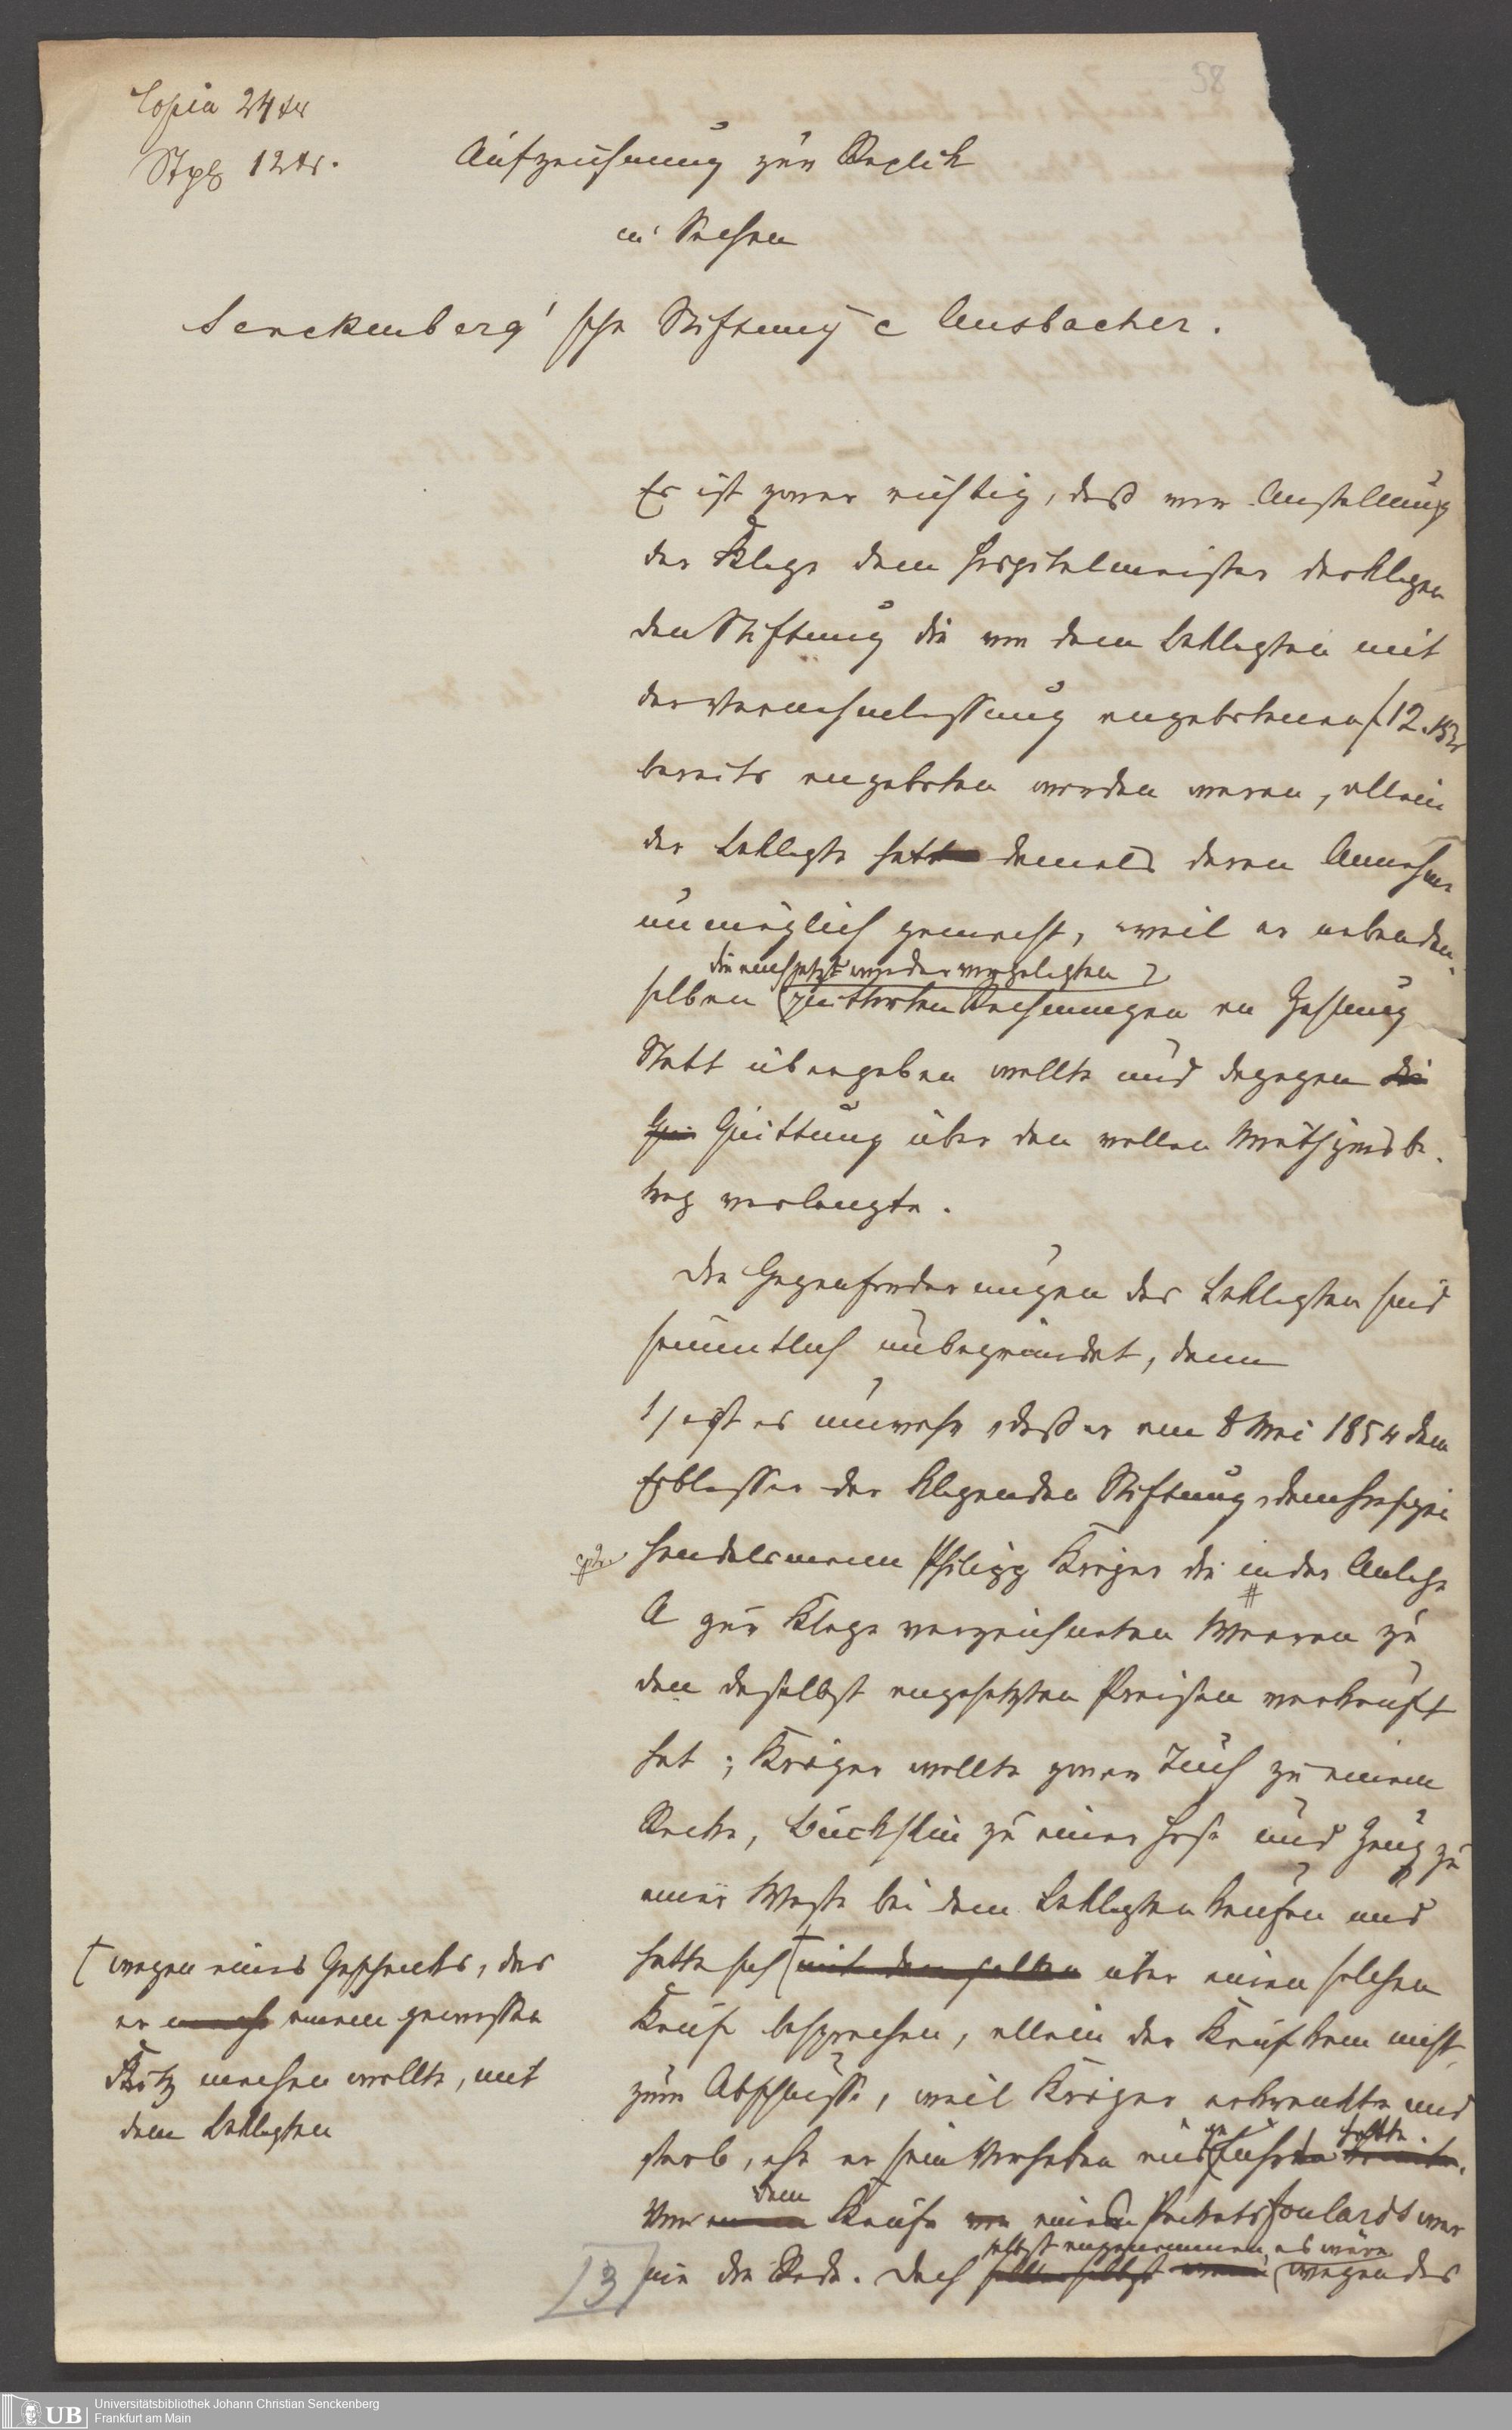 58
Copia 24 xr
Stpl 12 xr.
Aufzeichnung zur Replik
in Sachen
Senckenberg'sche Stiftung c Ansbacher.
Es ist zwar richtig, daß vor Anstellung
der Klage dem Hospitalmeister der klagen
den Stiftung die von dem Beklagten mit
der Vernehmlassung angebotenen f 12.
bereits angeboten worden waren, allein
der Beklagte hatte damals deren Annahme
unmöglich gemacht, weil er neben den-
die auch jetzt wieder vorgelegten
selben quittirten Rechnungen an Zahlung
Statt übergeben wollte und dagegen die
Qui Quittung über den vollen Miethzinsbe-
trag verlangte.
Die Gegenforderungen des Beklagten sind
sämmtlich unbegründet, denn
1/ ist es unwahr, daß er am 8 Mai 1854 dem
Erblasser der klagenden Stiftung, dem hiesigen
Handelsmann Philipp Krüger die in der Anlage
A zur Klage verzeichneten Waaren zu
den daselbst angesetzten Preisen verkauft
hat; Krüger wollte zwar Tuch zu einem
Rocke, Buckskin zu einer Hose und Zeug zu
einer Weste bei dem Beklagten kaufen und
hatte sich mit demselben über einen solchen
Kauf besprochen, allein der Kauf kam nicht
zum Abschlusse, weil Krüger erkrankte und
starb, ehe er sein Vorhaben ausgeführt hatte.
Von dem Kaufe eines Packets Foulards war
selbst angenommen, es wäre
nie die Rede. Doch wegen des
† wegen eines Geschenks, das
er einem gewissen
Fritz machen wollte, mit
dem Beklagten
[3]
UB
Universitätsbibliothek Johann Christian Senckenberg
Frankfurt am Main